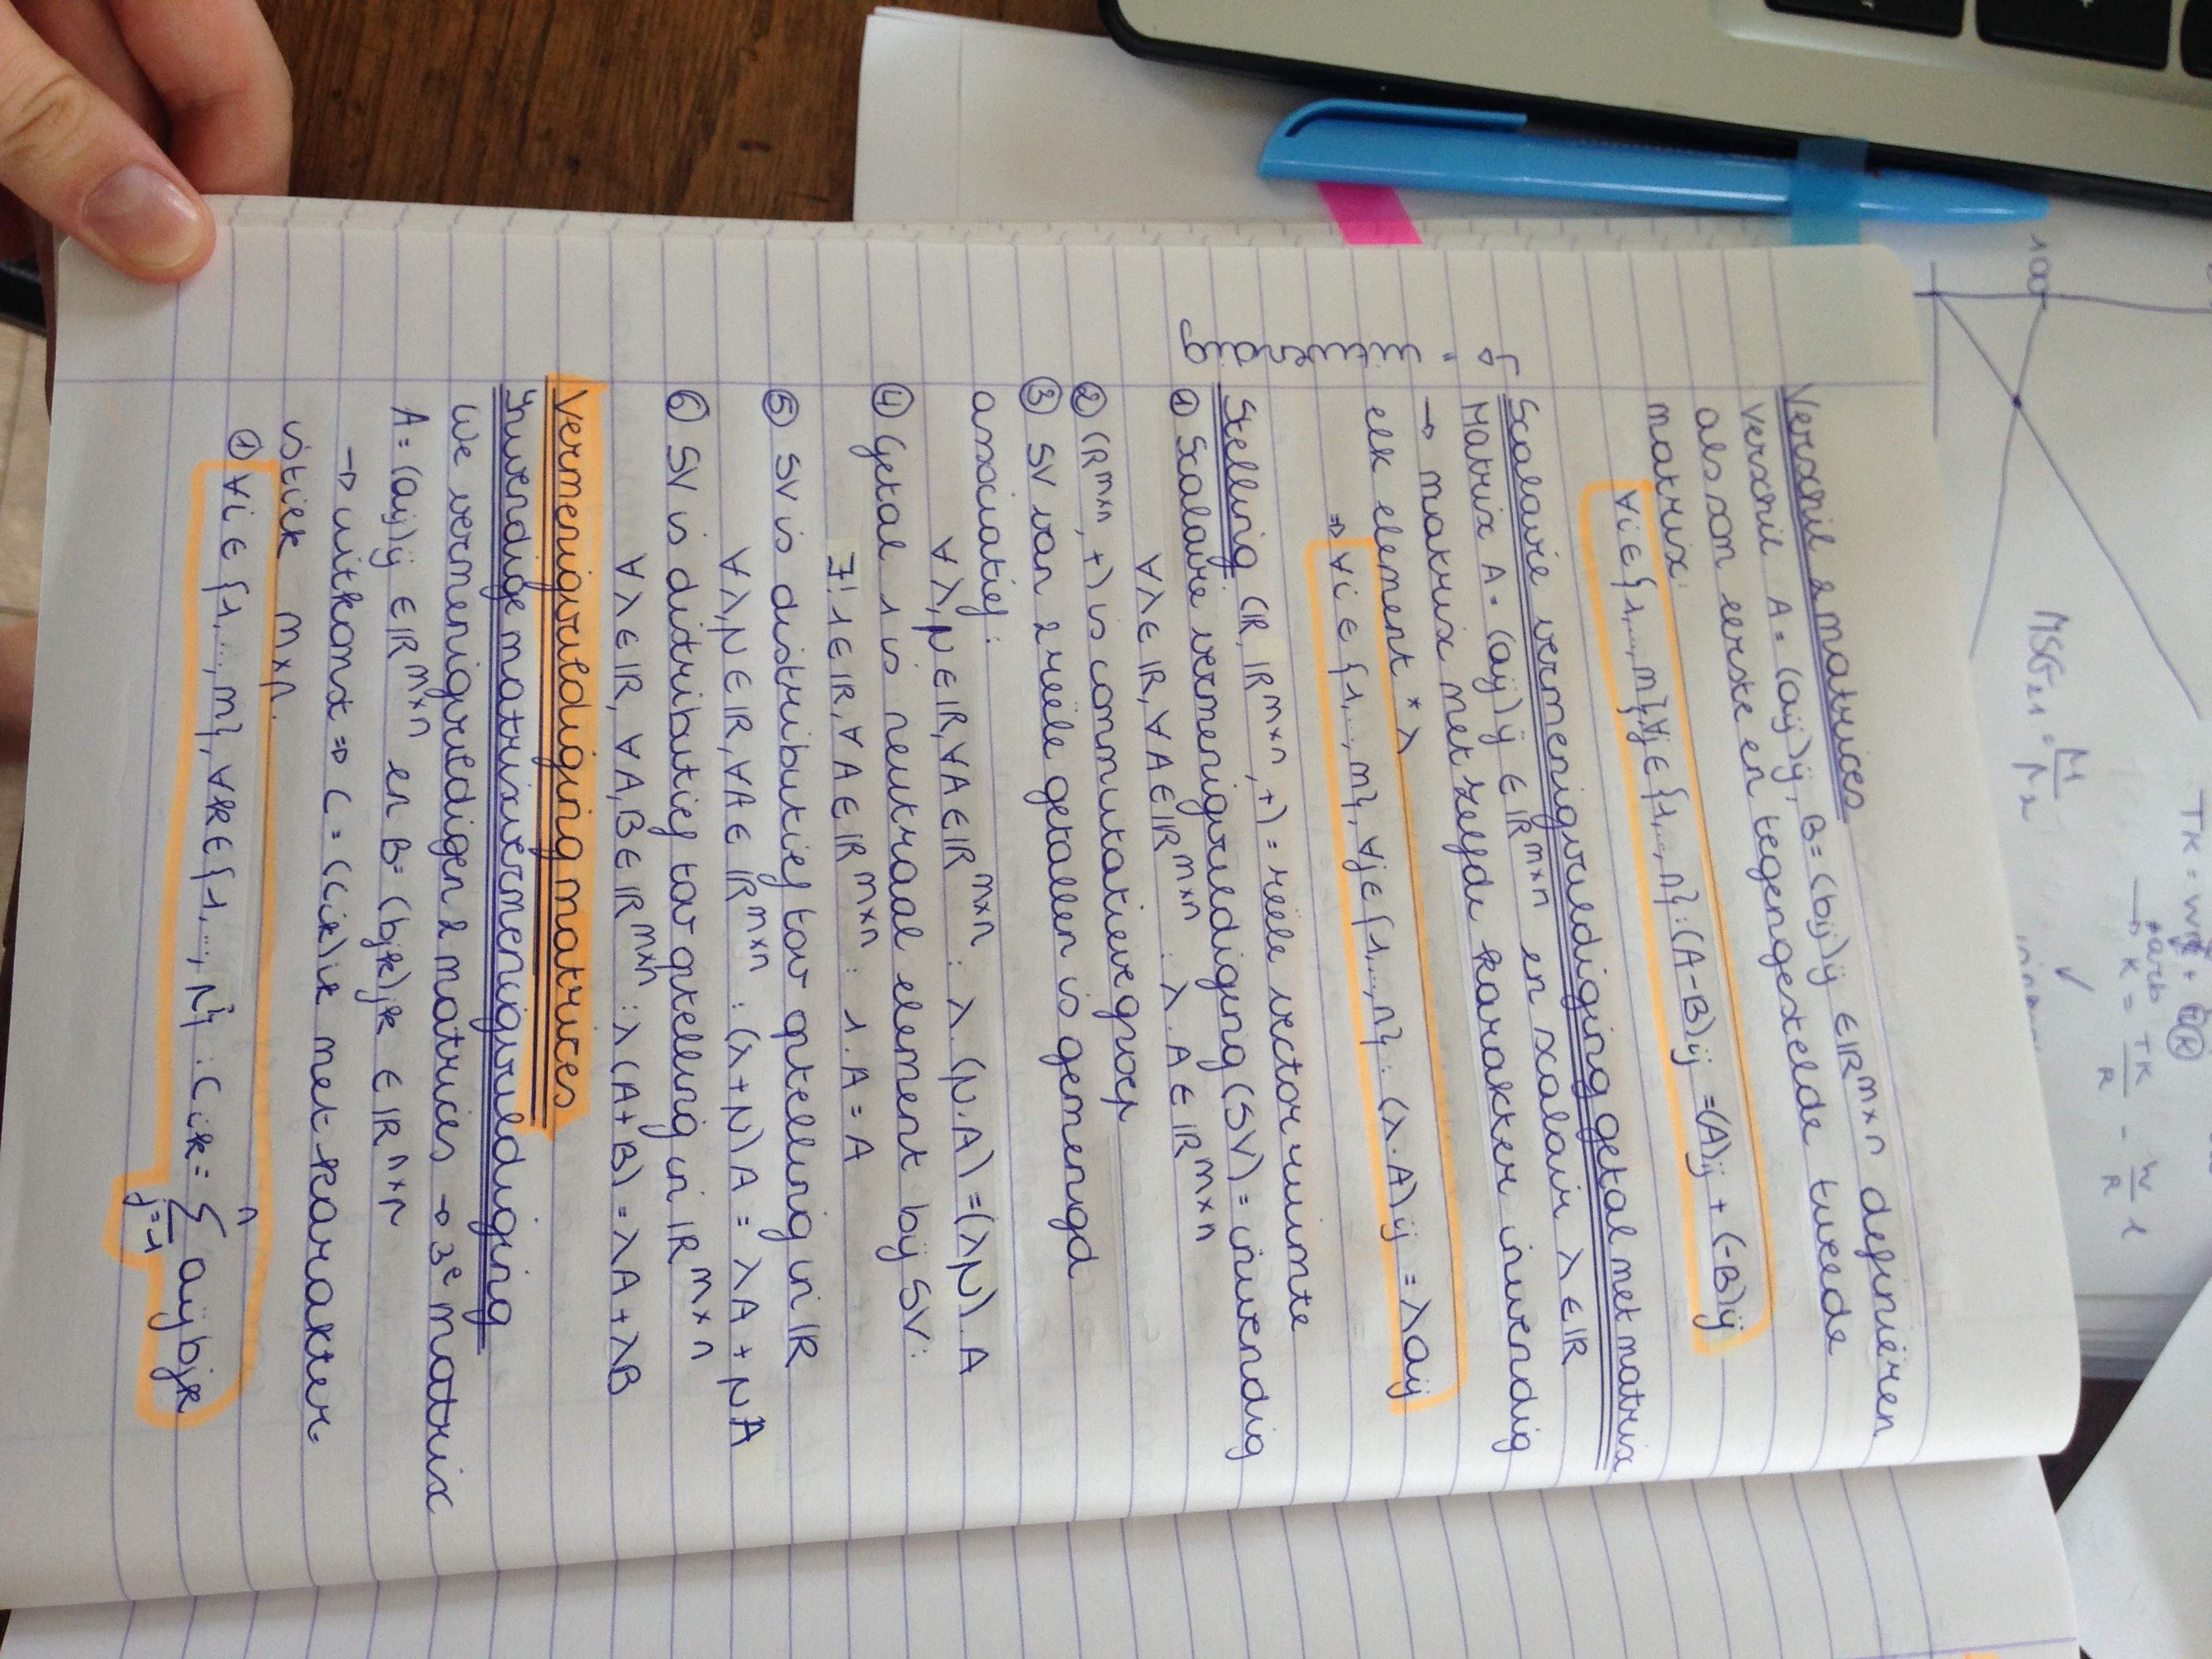 Verschil 2 matrices
Verschil A = (aij)ij, B = (bij)ij ∈ IR^m×n definiëren
als som eerste en tegengestelde tweede
matrix:
∀i ∈ {1,...,m}, ∀j ∈ {1,...,n} : (A-B)ij = (A)ij + (-B)ij
Scalaire vermenigvuldiging getal met matrix
Matrix A = (aij)ij ∈ IR^m×n en scalair λ ∈ IR
→ matrix met zelfde karakter inwendig
elk element * λ
⇒ ∀i ∈ {1,...,m}, ∀j ∈ {1,...,n} : (λ.A)ij = λaij
uitwendig
Stelling (IR, IR^m×n, +) = reële vectorruimte
① Scalaire vermenigvuldiging (SV) = inwendig
∀λ ∈ IR, ∀A ∈ IR^m×n : λ.A ∈ IR^m×n
② (R^m×n, +) is commutatieve groep
③ SV van 2 reële getallen is gemengd
associatief:
∀λ, μ ∈ IR, ∀A ∈ IR^m×n : λ.(μ.A) = (λμ).A
④ Getal 1 is neutraal element bij SV:
∃! 1 ∈ IR, ∀A ∈ IR^m×n : 1.A = A
⑤ SV is distributief tov optelling in IR
∀λ, μ ∈ IR, ∀A ∈ IR^m×n : (λ+μ)A = λA + μA
⑥ SV is ditributief tov optelling in IR^m×n
∀λ ∈ IR, ∀A,B ∈ IR^m×n : λ(A+B) = λA + λB
Vermenigvuldiging matrices
Inwendige matrixvermenigvuldiging
We vermenigvuldigen 2 matrices → 3e matrix
A = (aij)ij ∈ IR^m×n en B = (bjk)jk ∈ IR^n×r
→ uitkomst ⇒ C = (cik)ik met karakter-
istiek m×r.
① ∀i ∈ {1,...,m}, ∀k ∈ {1,...,r} : cik = ∑ j=1 n aij bjk
100
MSG21 =
TK =